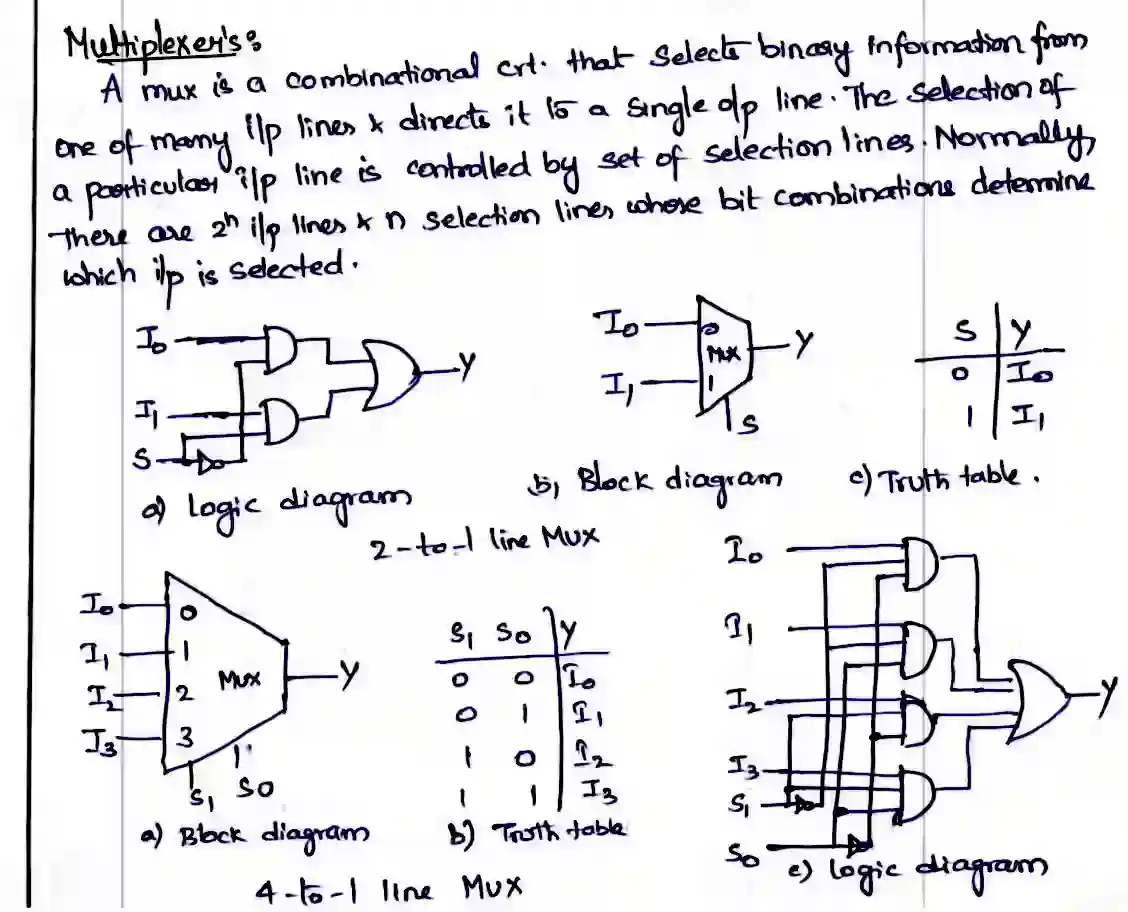 Multiplexer's:
A mux is a combinational crt. that selects binary information from
one of many i/p lines & directs it to a single o/p line. The selection of
a particular i/p line is controlled by set of selection lines. Normally,
there are 2ⁿ i/p lines & n selection lines whose bit combinations determine
which i/p is selected.
I₀
I₁
S
Y
a) logic diagram
I₀
I₁
0
Mux
1
Y
S
b) Block diagram
S Y
0 I₀
1 I₁
c) Truth table.
2-to-1 line Mux
I₀
I₁
I₂
I₃
0
1
2
3
Mux
Y
S₁ S0
a) Block diagram
S₁ S0 Y
0 0 I₀
0 1 I₁
1 0 I₂
1 1 I₃
b) Truth table
I₀
I₁
I₂
I₃
S₁
S0
Y
c) logic diagram
4-to-1 line Mux